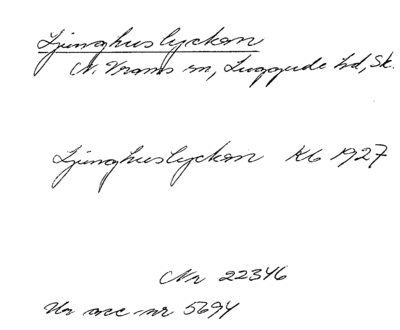 Ljunghuslyckan
N. Vrams sn, Luggude hd, Sk.
Ljunghuslyckan KB 1927
Nr 22346
Ur acc nr 5694